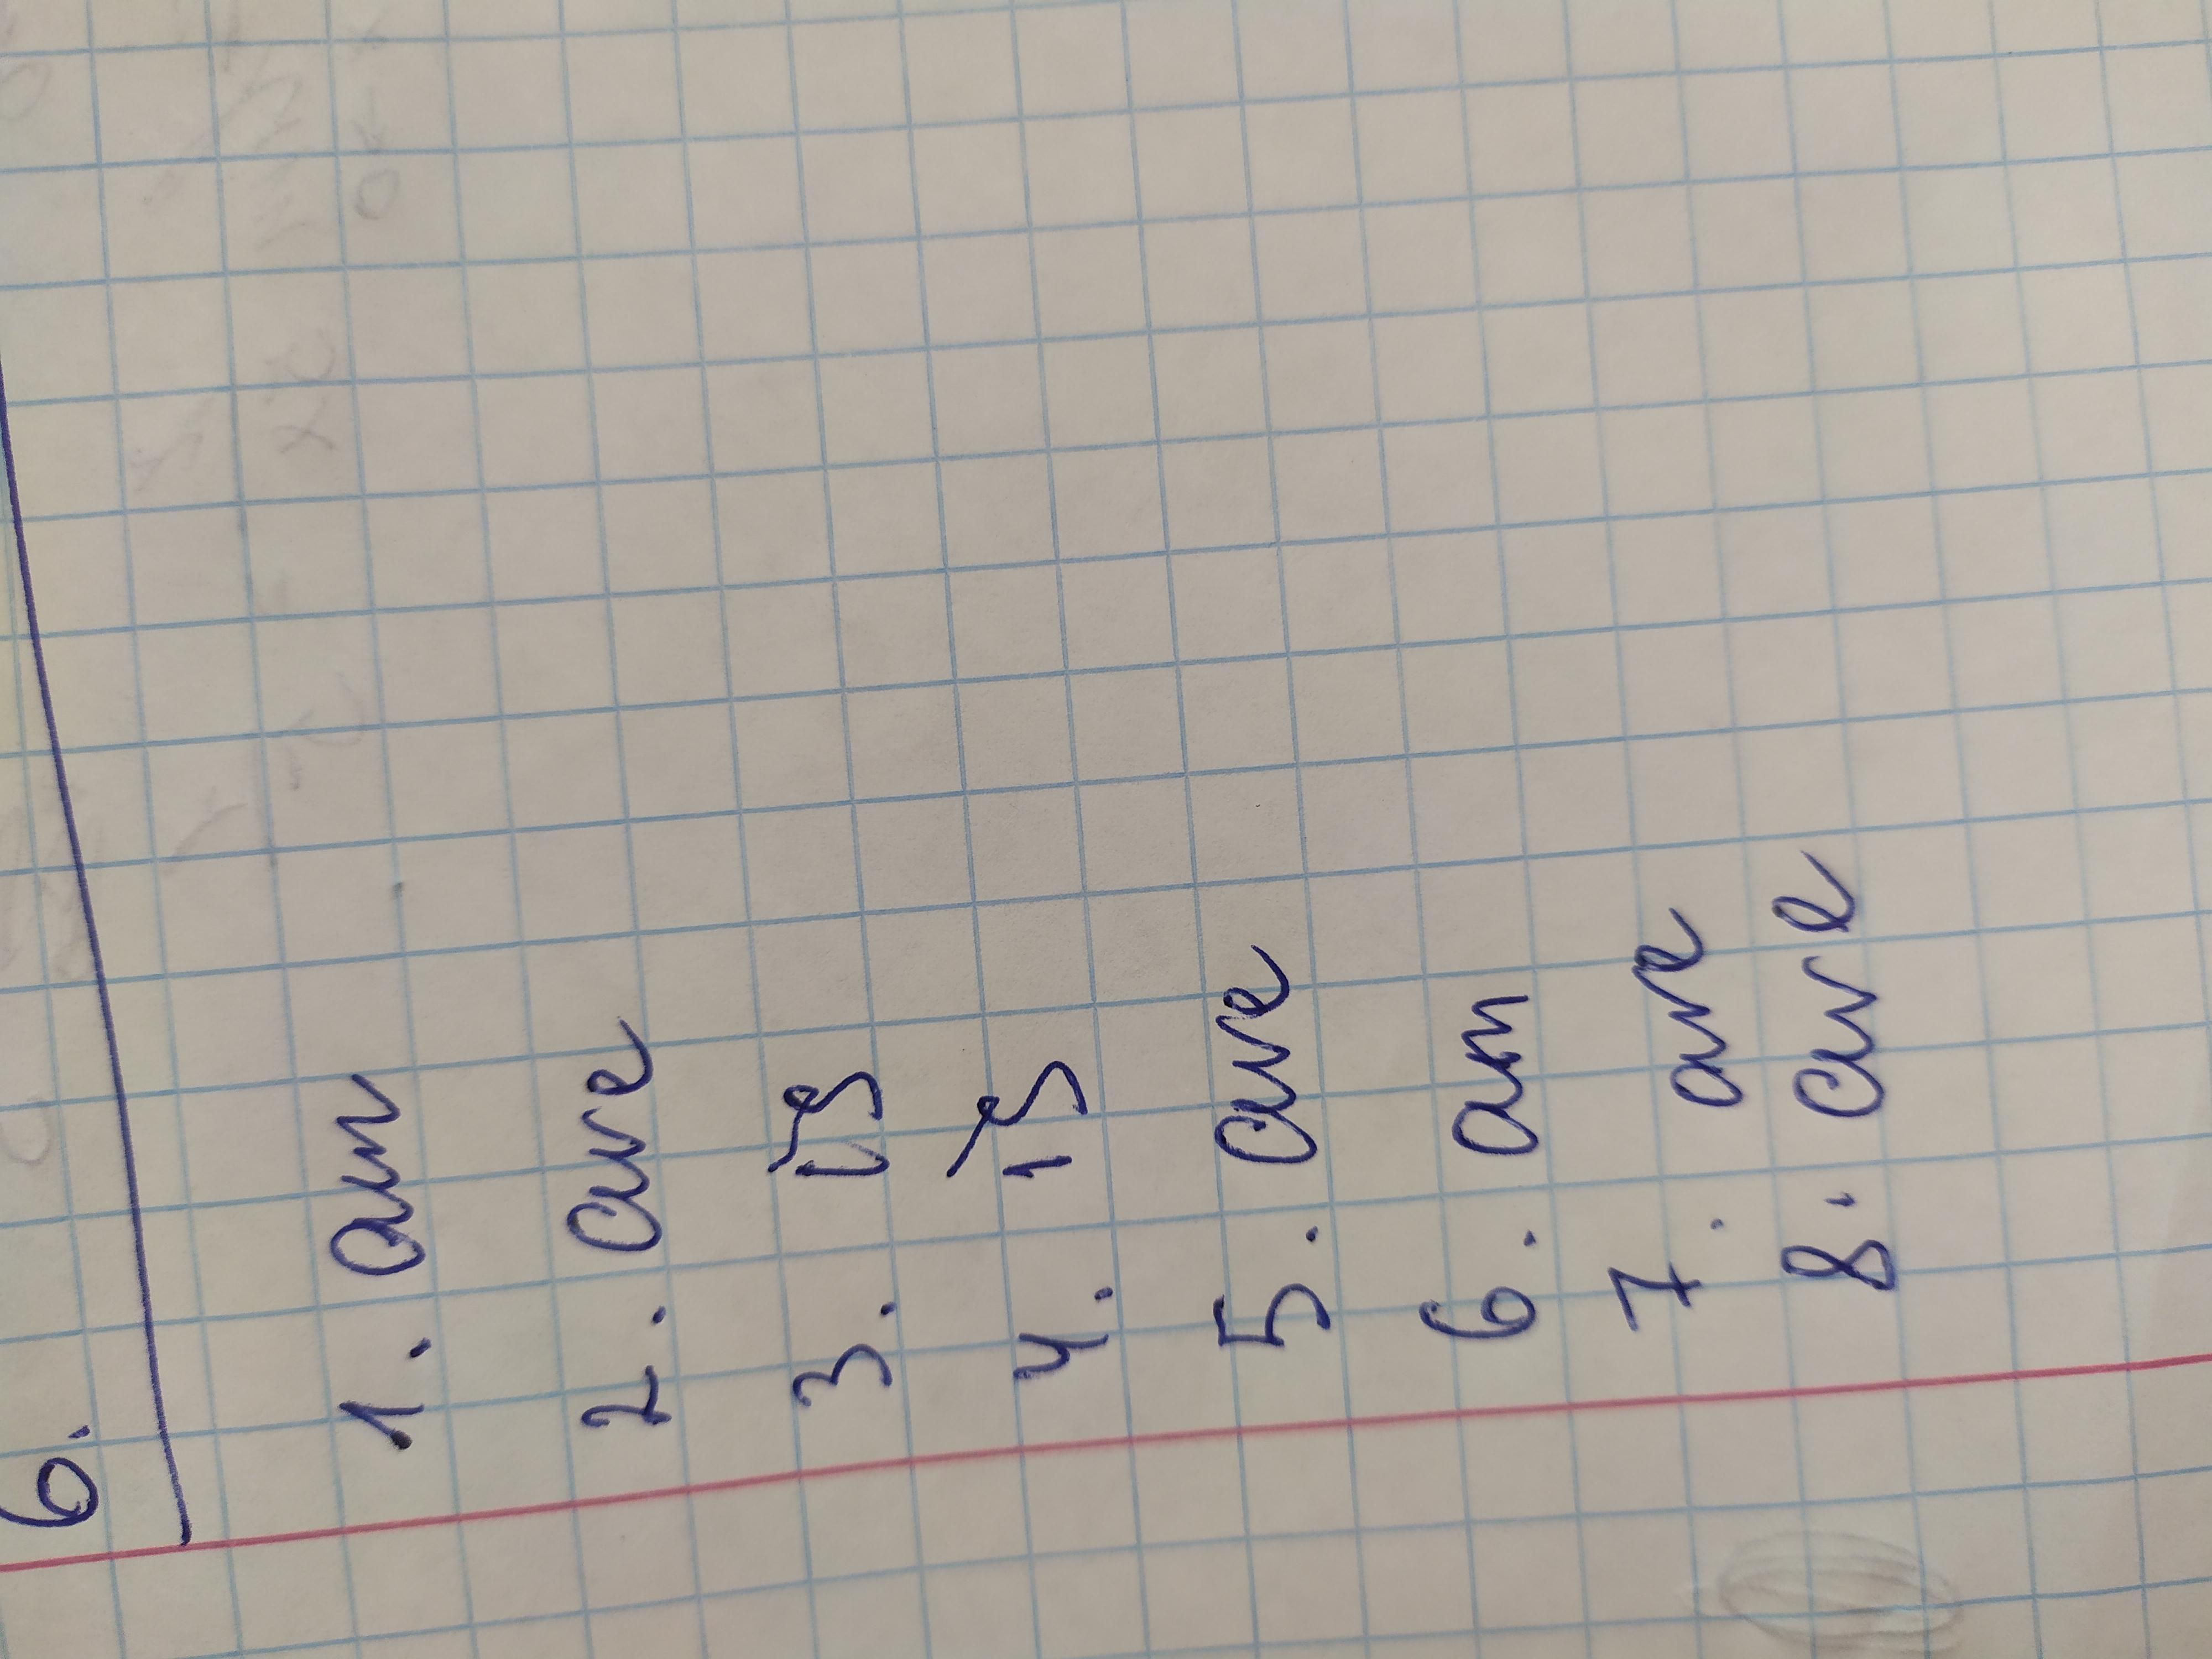 6.
1. am
2. are
3. is
4. is
5. are
6. am
7. are
8. are